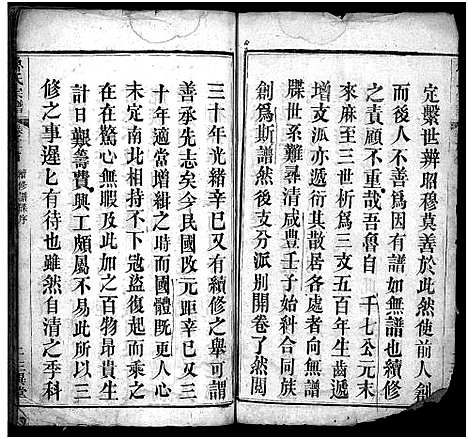 定繫世辨昭穆莫善於此然使前人創
而後人不善爲因有譜如無譜也續修
之責顧不重哉吾魯自 千七公元末
來麻至三世析爲三支五百年生齒遞
增支派亦遞衍其散居各處者向無譜
牒世系難尋清咸豐壬子始科合同族
創爲斯譜然後支分派別開卷了然閲
三十年光緒辛巳又有續修之舉可謂
善承先志矣今民國改元距辛巳又三
十年適當增緝之時而國體旣更人心
未定南北相持不下寇盜復起而乘之
在在驚心無暇及此加之百物昂貴生
計日艱籌費興工頗屬不易此所以三
修之事遲匕有待也雖然自清之季科
氏宗譜
續修譜牒序